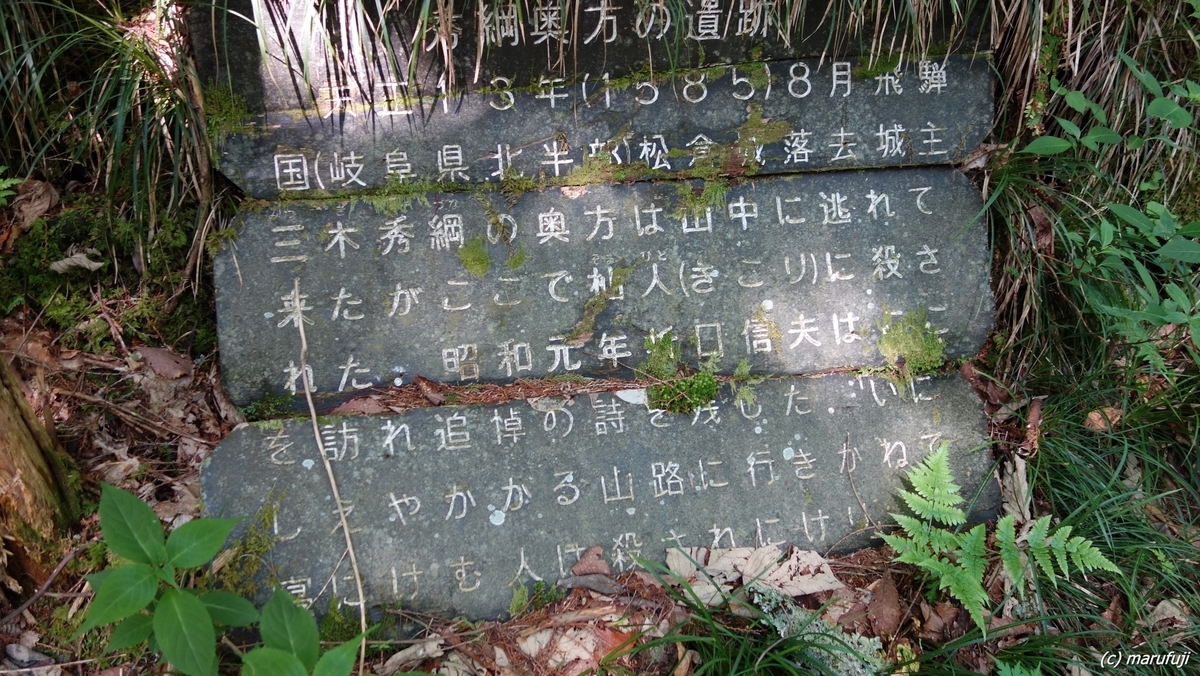 秀綱奥方の遺跡
天正13年(1585)8月飛騨
国(岐阜県北半部)松倉城落去城主
三木秀綱の奥方は山中に逃れて
来たがここで杣人(きこり)に殺さ
れた。昭和元年 口信夫はここ
を訪れ追悼の詩を残した。
しえやかかる山路に行きかねて
寝にけむ人は殺されにけ
(c) marufuji